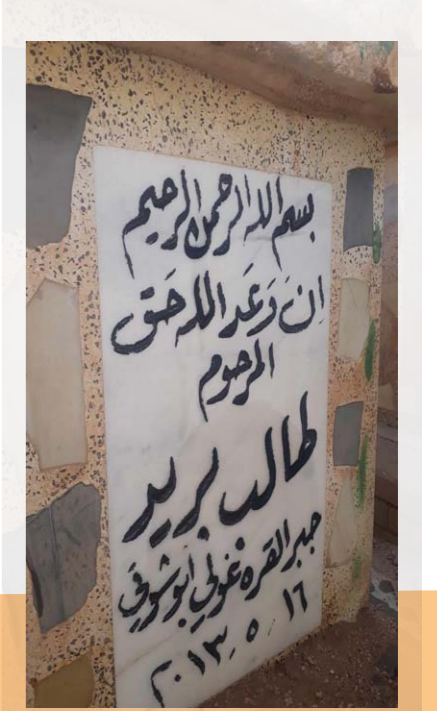 بسم الله الرحمن الرحيم
ان وعد الله حق
المرحوم
طالب بريد
جبر القره غولي ابو شوقي
٢٠١٣.٥.١٦